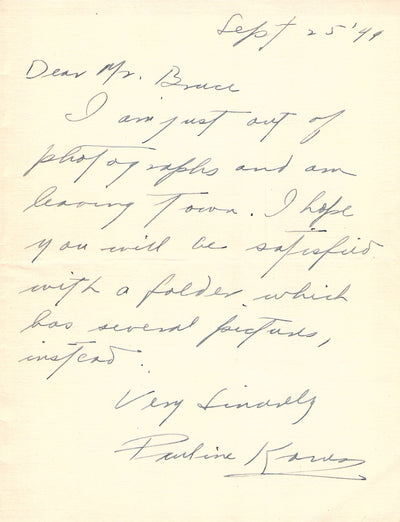 Sept 25 '49
Dear Mr. Bruce
I am just out of
photographs and am
leaving town. I hope
you will be satisfied
with a folder which
has several pictures,
instead.
Very Sincerely
Pauline Koner